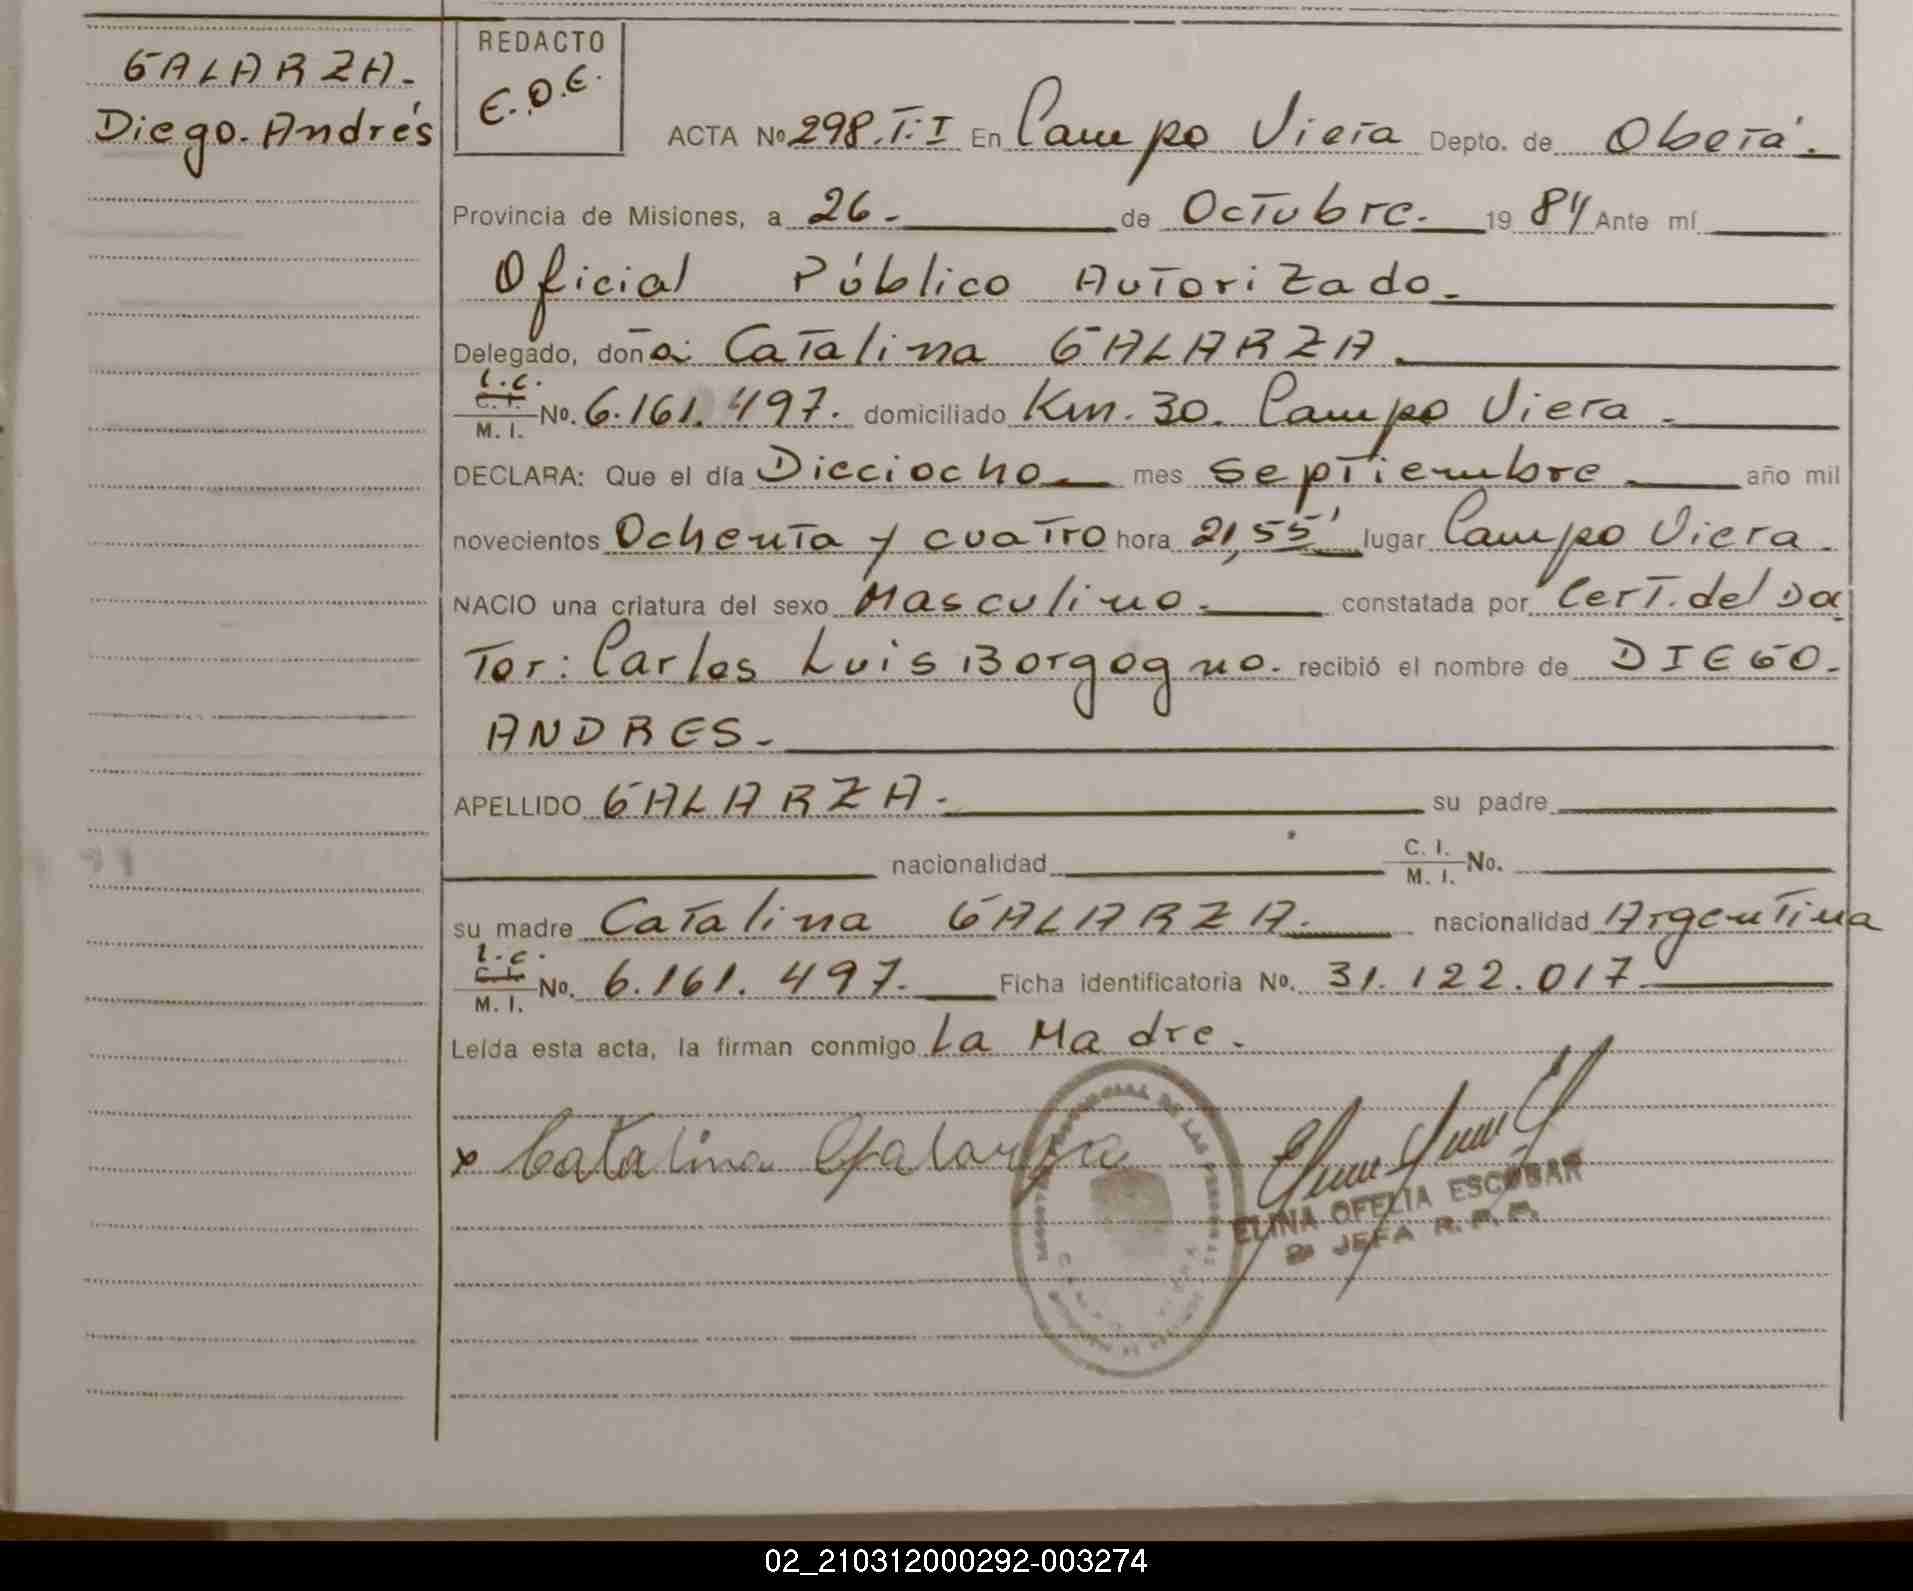 GALARZA.
Diego. Andrés
REDACTO
E.O.E.
ACTA Nº 298.T.I En Campo Viera Depto. de Oberá.
Provincia de Misiones, a 26. de Octubre. 19 84 Ante mí
Oficial Público Autorizado.
Delegado, doña: Catalina GALARZA.
L.C.
C. I.
M. I. No. 6.161.497. domiciliado Km. 30. Campo Viera.
DECLARA: Que el día Dieciocho mes septiembre año mil
novecientos Ochenta y cuatro hora 21,55' lugar Campo Viera.
NACIO una criatura del sexo Masculino. constatada por Cert. del Doc
Tor: Carlos Luis Borgogno. recibió el nombre de DIEGO.
ANDRES.
APELLIDO GALARZA. su padre
nacionalidad C. I. M. I. No.
su madre Catalina GALARZA. nacionalidad Argentina
L.C.
C. I.
M. I. No. 6.161.497. Ficha identificatoria No. 31.122.017.
Leída esta acta, la firman conmigo La Madre.
x Catalina Galarza
ELINA OFELIA ESCOBAR
JEFA R.P.P.
02_210312000292-003274